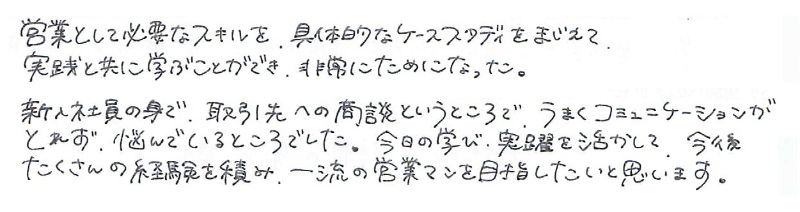 営業として必要なスキルを、具体的なケーススタディをまじえて、
実践と共に学ぶことができ、非常にためになった。
新入社員の身で、取引先への商談というところで、うまくコミュニケーションが
とれず、悩んでいるところでした。今日の学び、実躍を活かして、今後
たくさんの経験を積み、一流の営業マンを目指したいと思います。